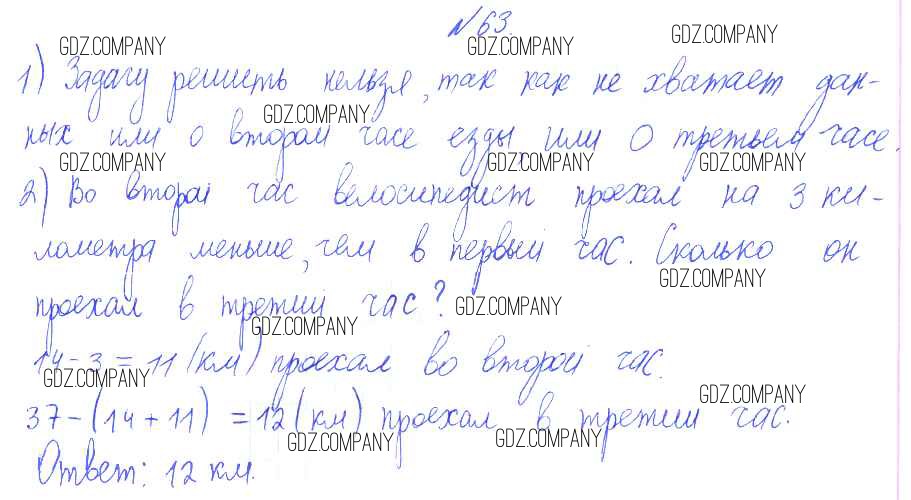 №63.
1) Задачу решить нельзя, так как не хватает дан-
ных или о втором часе езды, или о третьем часе.
2) Во второй час велосипедист проехал на 3 ки-
лометра меньше, чем в первый час. Сколько он
проехал в третий час?
14-3=11(км) проехал во второй час.
37-(14+11)=12(км) проехал в третий час.
Ответ: 12 км.
GDZ.COMPANY
GDZ.COMPANY
GDZ.COMPANY
GDZ.COMPANY
GDZ.COMPANY
GDZ.COMPANY
GDZ.COMPANY
GDZ.COMPANY
GDZ.COMPANY
GDZ.COMPANY
GDZ.COMPANY
GDZ.COMPANY
GDZ.COMPANY
GDZ.COMPANY